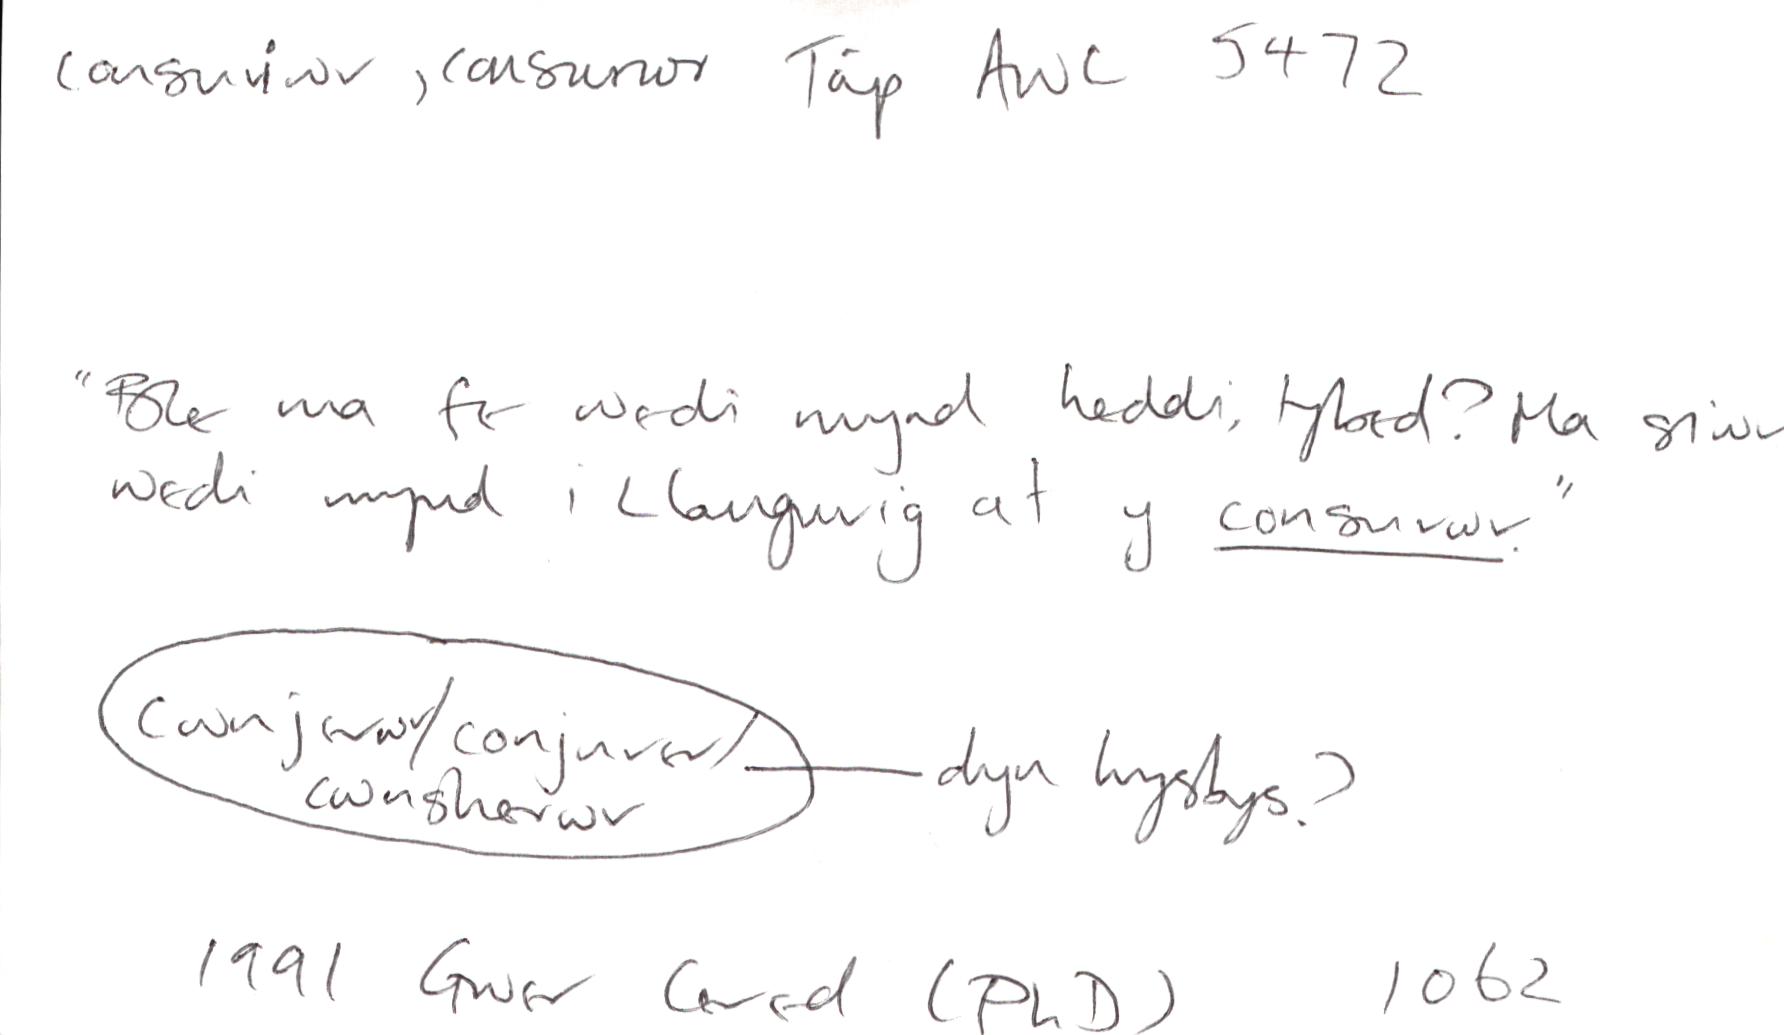 consuriwr, consurwr Tâp AWC 5472
"Ble ma fe wedi mynd heddi, tybed? Ma siwr
wedi mynd i Llangurig at y consurwr."
cwnjerwr/conjurer/
cwnsherwr
dyn hysbys?
1991 Gwer Cered (PhD) 1062